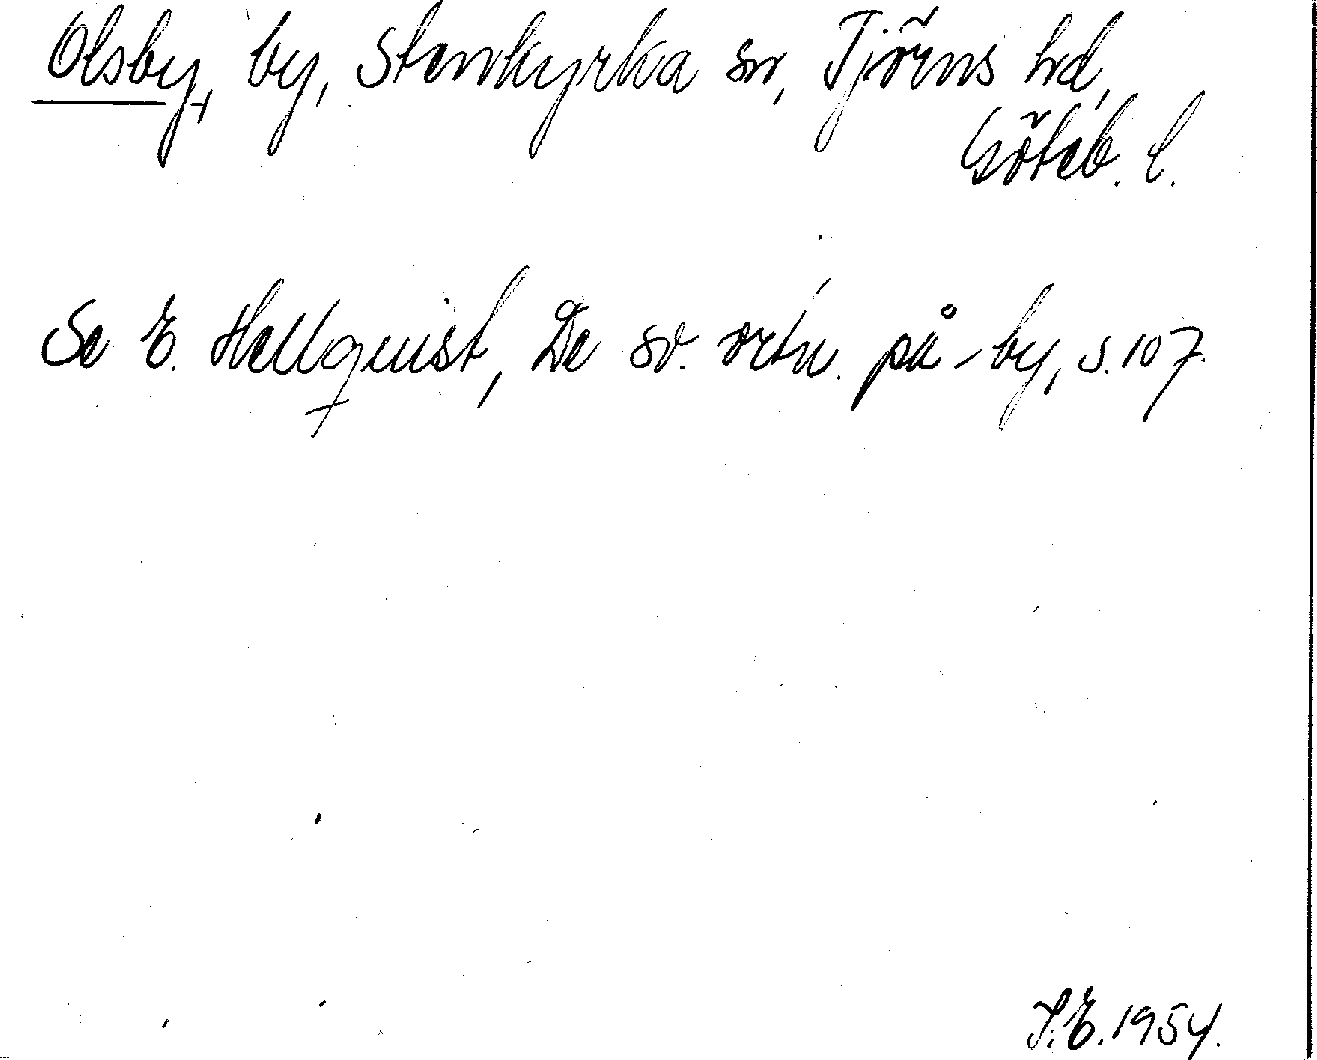 Olsby, by, Stenkyrka sn, Tjörns hd,
Göteb. l.
Se E. Hellquist, De sv. ortn. på -by, s. 107.
S.E. 1954.